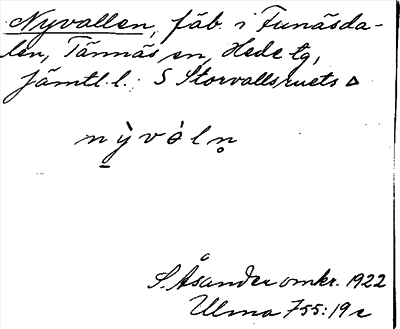 Nyvallen, fäb. i Funäsda-
len, Tännäs sn, Hede tg,
Jämtl. l. S Storvallsruets Δ
n̲ ẏ̀ v ȯ́ l n̥
S. Åsander omkr. 1922
Ulma 755:19c